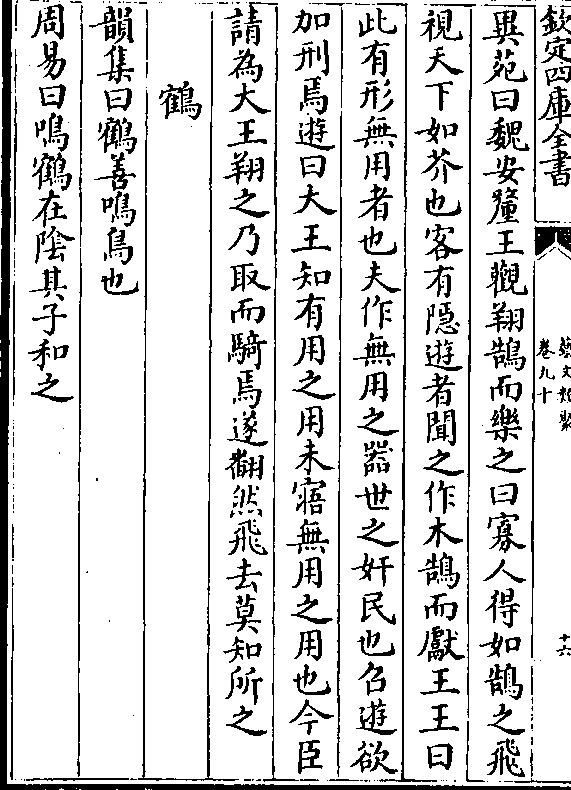 欽定四庫全書
藝文類聚
卷九十
十六
異苑曰魏安釐王觀翔鵠而樂之曰寡人得如鵠之飛
視天下如芥也客有隱遊者聞之作木鵠而獻王王曰
此有形無用者也夫作無用之器世之奸民也召遊欲
加刑焉遊曰大王知有用之用未寤無用之用也今臣
請為大王翔之乃取而騎焉遂翻然飛去莫知所之
鶴
韻集曰鶴善鳴鳥也
周易曰鳴鶴在陰其子和之